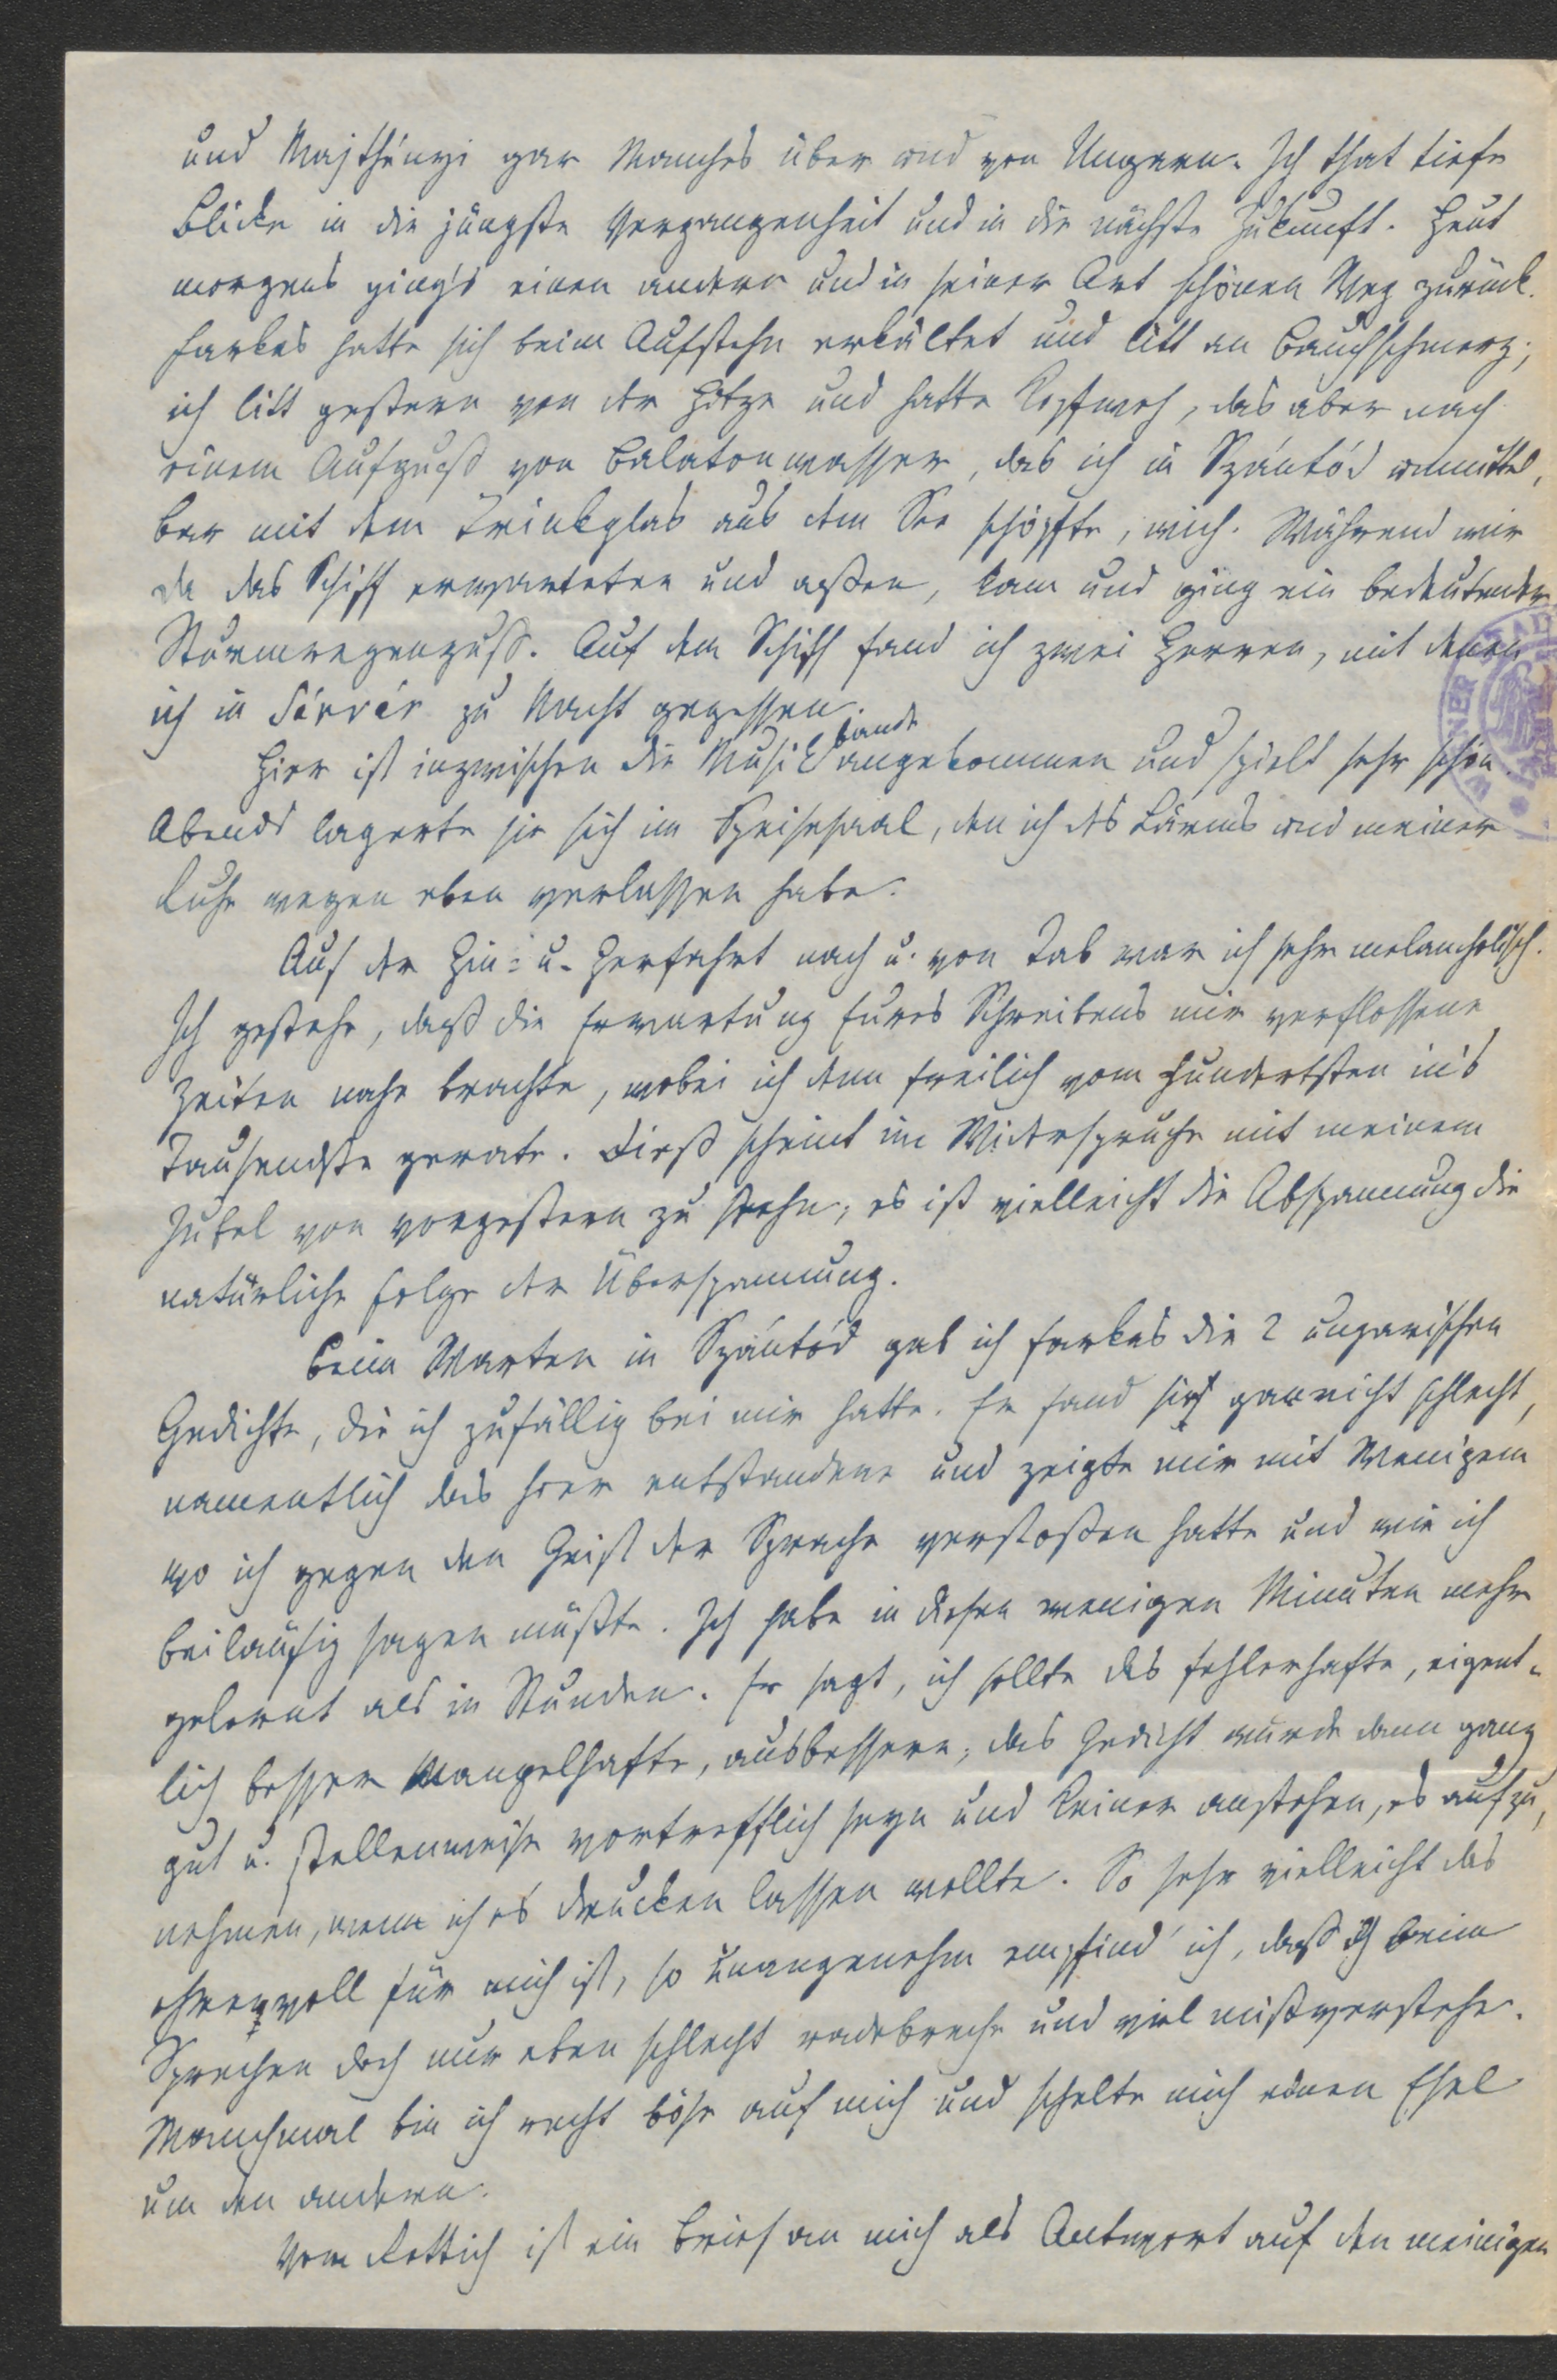 und Majthényi gar Manches über und von Ungarn. Ich that tiefe
Blicke in die jüngste Vergangenheit und in die nächste Zukunft. Heut
morgens ging's einen andern und in seiner Art schönen Weg zurück.
Farkas hatte sich beim Aufstehn erkältet und litt an Bauchschmerz;
ich litt gestern von der Hitze und hatte Kopfweh, das aber nach
einem Aufguß von Balatonwasser, das ich in Szántód unmittel,
bar mit dem Trinkglas aus dem See schöpfte, wich. Während wir
da das Schiff erwarteten und aßen, kam und ging ein bedeutender
Sturmregenguß. Auf dem Schiff fand ich zwei Herren, mit denen
ich in zu Nacht gegessen.
Hier ist inzwischen die Musikbande angekommen und spielt sehr schön.
Abends lagerte sie sich im Speisesaal, den ich des Lärms und meiner
Ruhe wegen eben verlassen habe.
Auf der Hin= u. Herfahrt nach u. von Tab war ich sehr melancholisch.
Ich gestehe, daß die Erwartung Eures Schreibens mir verflossene
Zeiten nahe brachte, wobei ich denn freilich vom Hundertsten in's
Tausendste gerate. Dieß scheint im Widerspruche mit meinem
Jubel von vorgestern zu stehn; es ist vielleicht die Abspannung die
natürliche Folge der Überspannung.
Beim Warten in Szántód gab ich Farkas die 2 ungarischen
Gedichte, die ich zufällig bei mir hatte. Er fand sie gar nicht schlecht,
namentlich das hier entstandene und zeigte mir mit Wenigem
wo ich gegen den Geist der Sprache verstoßen hatte und wie ich
beiläufig sagen müßte. Ich habe in diesen wenigen Minuten mehr
gelernt als in Stunden. Er sagt, ich sollte das fehlerhafte, eigent-
lich besser Mangelhafte, ausbessern; das Gedicht würde dann ganz
gut u. stellenweise vortrefflich seyn und Keiner anstehen, es aufzu,
nehmen, wenn ich es drucken lassen wollte. So sehr vielleicht das
ehrenvoll für mich ist, so unangenehm empfind' ich, daß ich beim
Sprechen doch nur eben schlecht radebreche und viel mißverstehe.
Manchmal bin ich recht böse auf mich und schelte mich einen Esel
um den andern.
Vom Rettich ist ein Brief an mich als Antwort auf den meinigen